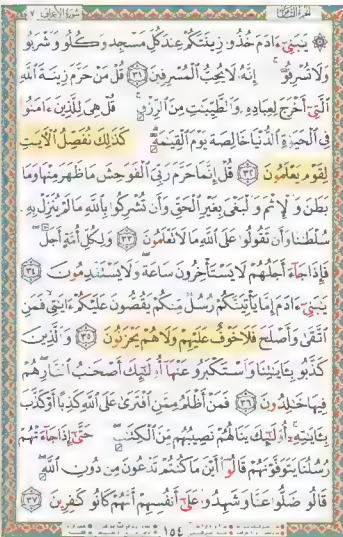 الجزء الثامن سورة الأعراف ٧
۞ يَبَنِىٓ ءَادَمَ خُذُوا۟ زِينَتَكُمْ عِندَ كُلِّ مَسْجِدٍ وَكُلُوا۟ وَاشْرَبُوا۟
وَلَا تُسْرِفُوٓا۟ إِنَّهُۥ لَا يُحِبُّ الْمُسْرِفِينَ ٣١ قُلْ مَنْ حَرَّمَ زِينَةَ اللَّهِ
الَّتِىٓ أَخْرَجَ لِعِبَادِهِۦ وَالطَّيِّبَتِ مِنَ الرِّزْقِ قُلْ هِىَ لِلَّذِينَ ءَامَنُوا۟
فِى الْحَيَوةِ الدُّنْيَا خَالِصَةً يَوْمَ الْقِيَمَةِ كَذَلِكَ نُفَصِّلُ الْءَايَتِ
لِقَوْمٍ يَعْلَمُونَ ٣٢ قُلْ إِنَّمَا حَرَّمَ رَبِّىَ الْفَوَحِشَ مَا ظَهَرَ مِنْهَا وَمَا
بَطَنَ وَالْإِثْمَ وَالْبَغْىَ بِغَيْرِ الْحَقِّ وَأَن تُشْرِكُوا۟ بِاللَّهِ مَا لَمْ يُنَزِّلْ بِهِۦ
سُلْطَنًا وَأَن تَقُولُوا۟ عَلَى اللَّهِ مَا لَا تَعْلَمُونَ ٣٣ وَلِكُلِّ أُمَّةٍ أَجَلٌ
فَإِذَا جَآءَ أَجَلُهُمْ لَا يَسْتَأْخِرُونَ سَاعَةً وَلَا يَسْتَقْدِمُونَ ٣٤
يَبَنِىٓ ءَادَمَ إِمَّا يَأْتِيَنَّكُمْ رُسُلٌ مِّنكُمْ يَقُصُّونَ عَلَيْكُمْ ءَايَتِى فَمَنِ
اتَّقَى وَأَصْلَحَ فَلَا خَوْفٌ عَلَيْهِمْ وَلَا هُمْ يَحْزَنُونَ ٣٥ وَالَّذِينَ
كَذَّبُوا۟ بِـَٔايَتِنَا وَاسْتَكْبَرُوا۟ عَنْهَآ أُو۟لَٓئِكَ أَصْحَبُ النَّارِ هُمْ
فِيهَا خَلِدُونَ ٣٦ فَمَنْ أَظْلَمُ مِمَّنِ افْتَرَى عَلَى اللَّهِ كَذِبًا أَوْ كَذَّبَ
بِـَٔايَتِهِۦٓ أُو۟لَٓئِكَ يَنَالُهُمْ نَصِيبُهُم مِّنَ الْكِتَبِ حَتَّىٓ إِذَا جَآءَتْهُمْ
رُسُلُنَا يَتَوَفَّوْنَهُمْ قَالُوٓا۟ أَيْنَ مَا كُنتُمْ تَدْعُونَ مِن دُونِ اللَّهِ
قَالُوا۟ ضَلُّوا۟ عَنَّا وَشَهِدُوا۟ عَلَىٓ أَنفُسِهِمْ أَنَّهُمْ كَانُوا۟ كَفِرِينَ ٣٧
١٥٤